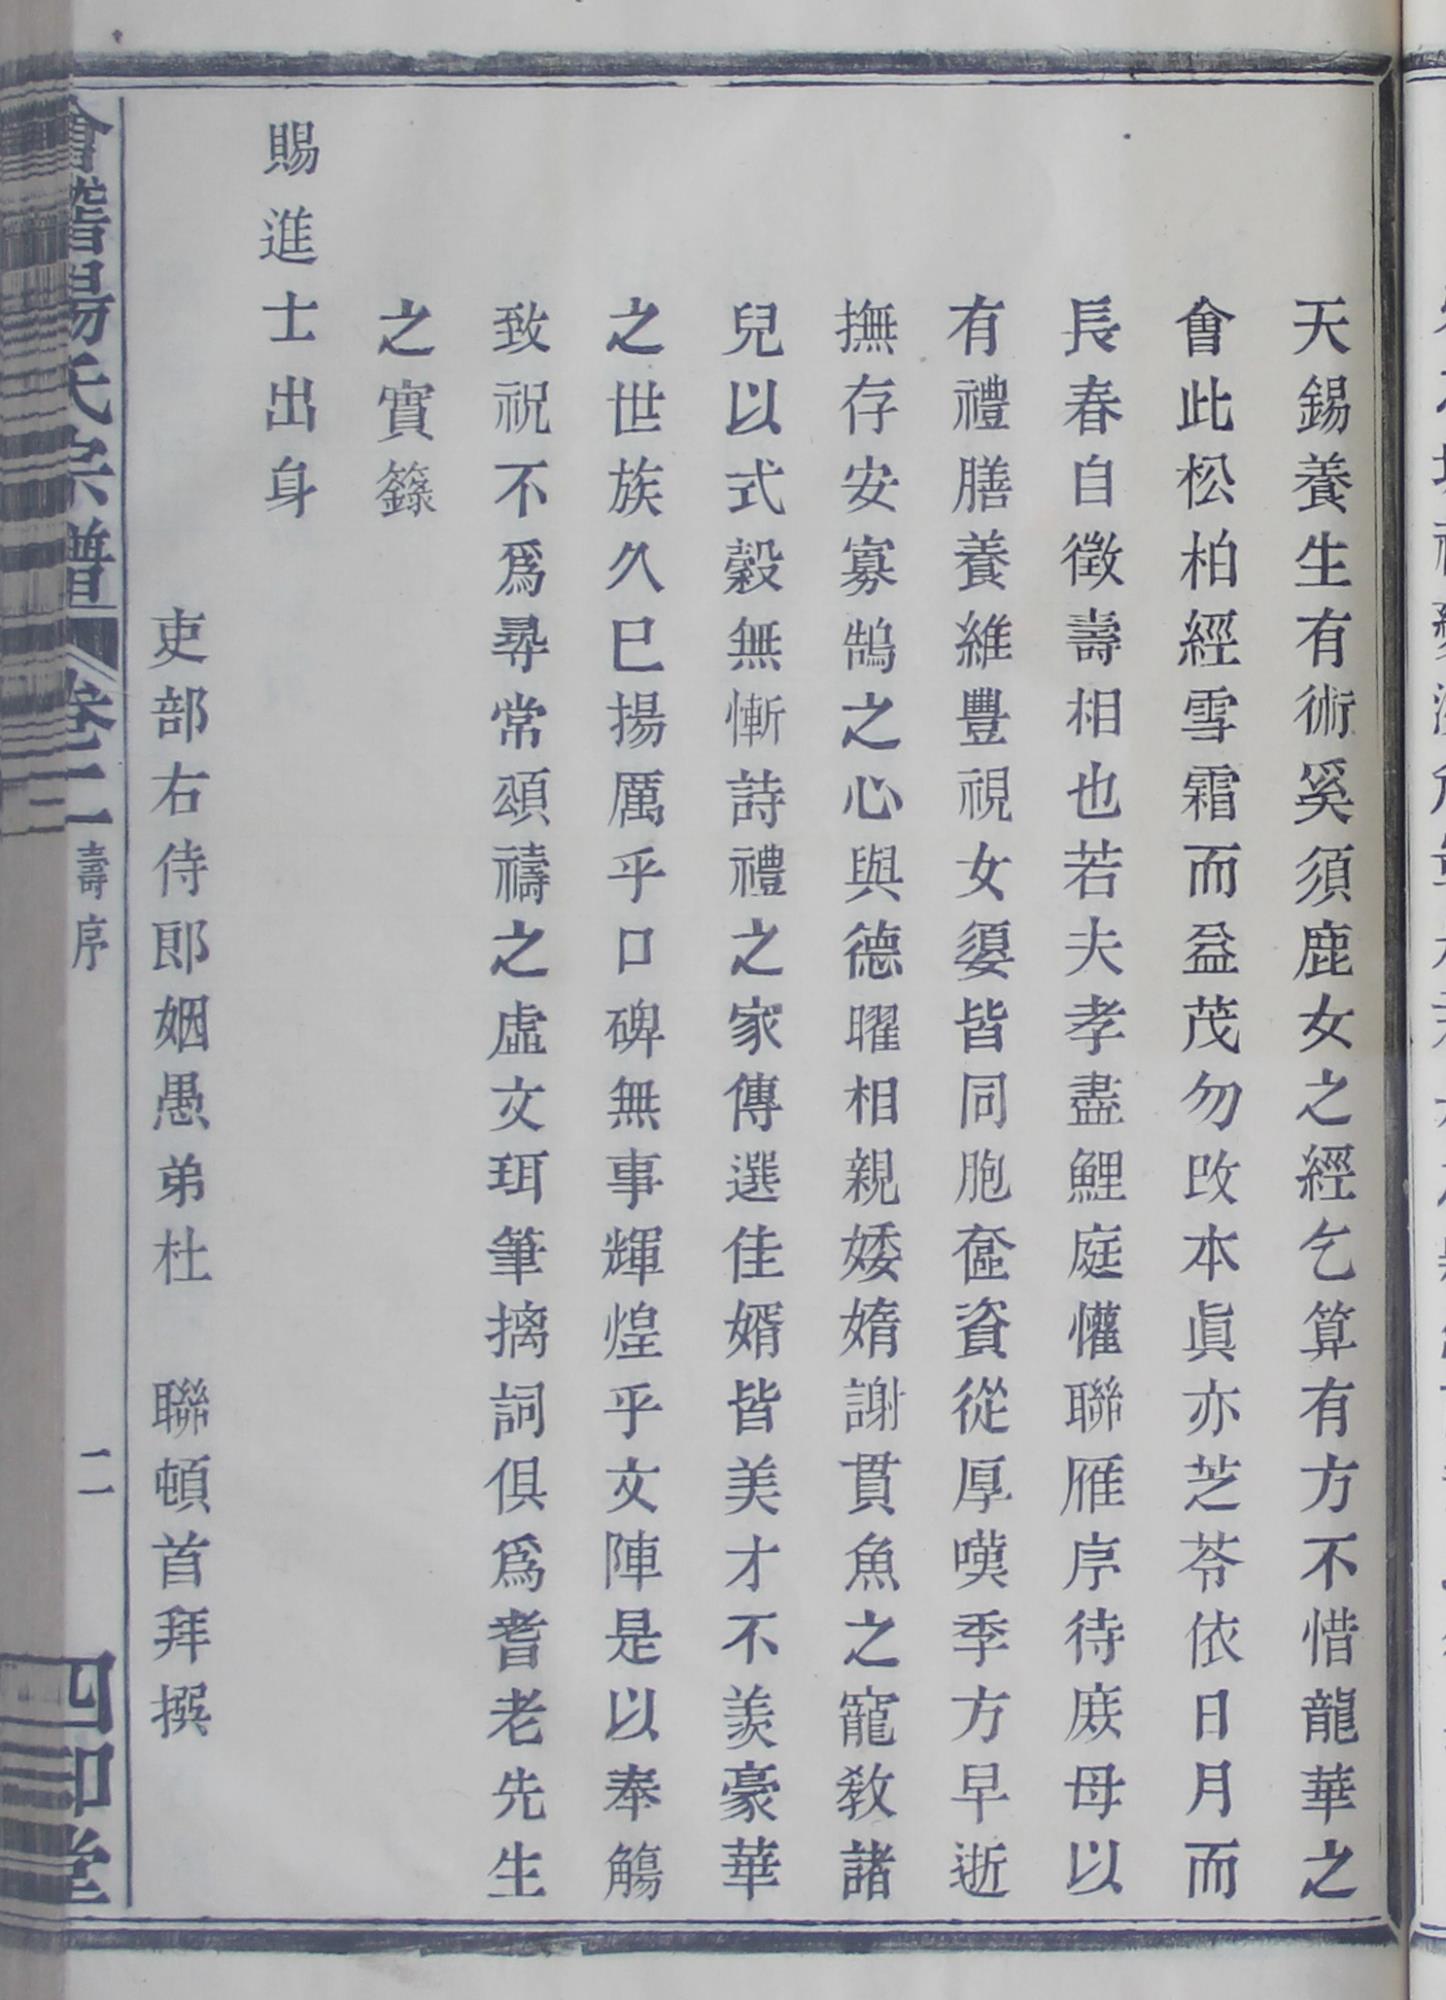 天錫養生有術奚須鹿女之經乞算有方不惜龍華之
會此松柏經雪霜而益茂勿改本眞亦芝苓依日月而
長春自徵壽相也若夫孝盡鯉庭懽聯雁序待庶母以
有禮膳養維豐視女嬃皆同胞奩資從厚嘆季方早逝
撫存安寡鵠之心與德曜相親婑媠謝貫魚之寵敎諸
兒以式穀無慚詩禮之家傳選佳婿皆美才不羨豪華
之世族久巳揚厲乎口碑無事輝煌乎文陣是以奉觴
致祝不爲尋常頌禱之虛文珥筆摛詞俱爲耆老先生
之實籙
賜進士出身
吏部右侍郎姻愚弟杜 聯頓首拜撰
會稽楊氏宗譜 卷二 壽序 二 四知堂